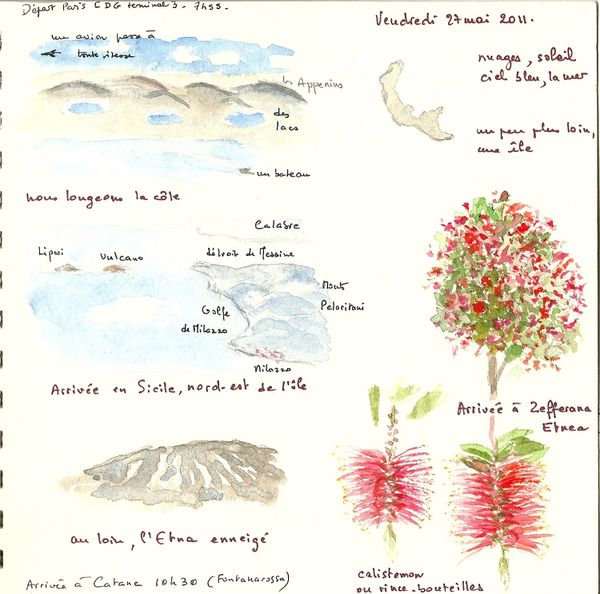 Départ Paris CDG terminal 3 - 7h55 -
Vendredi 27 mai 2011.
un avion passe à
toute vitesse
nuages, soleil
ciel bleu, la mer
les Appenins
des
lacs
un peu plus loin,
une île
un bateau
nous longeons la côte
Calabre
Lipari
Vulcano
détroit de Messine
Monts
Peloritani
Golfe
de Milazzo
Milazzo
Arrivée en Sicile, nord-est de l'île
Arrivée à Zefferana
Etnea
au loin, l'Etna enneigé
calistemon
ou rince-bouteilles
Arrivée à Catane 10h30 (Fontanarossa)